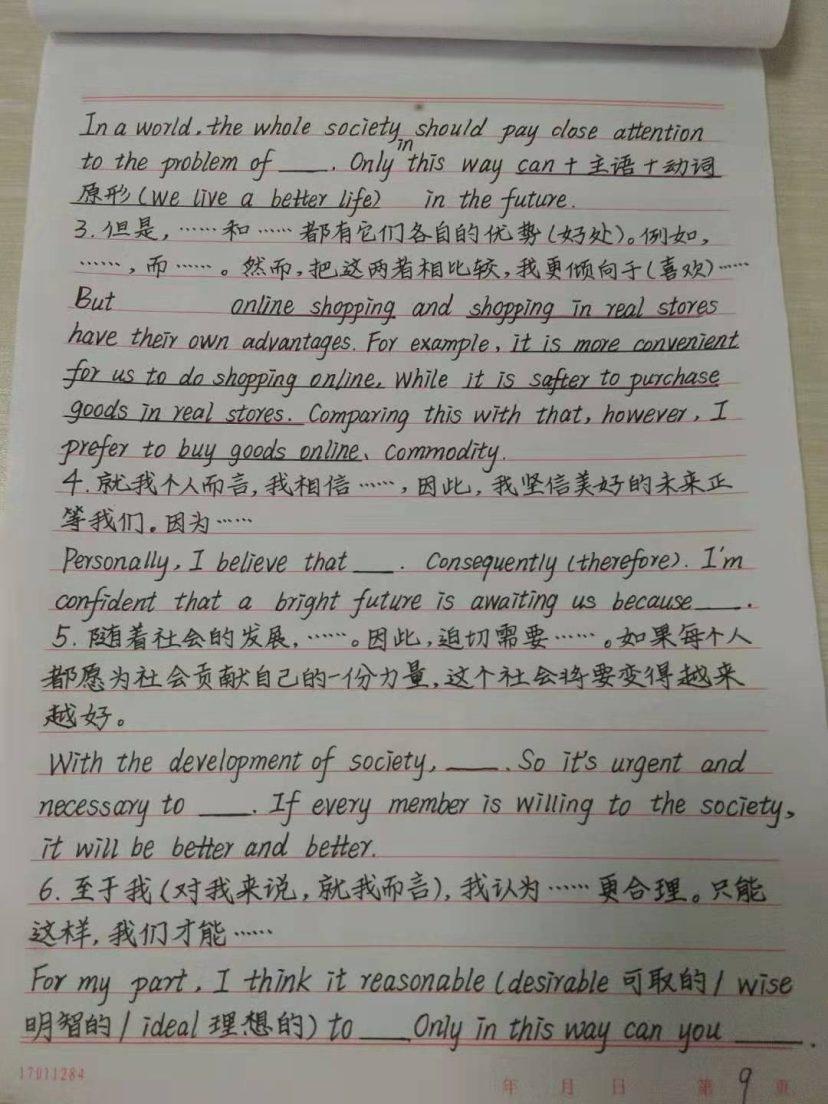 In a world, the whole society should pay close attention
to the problem of ____. Only in this way can + 主语 + 动词
原形 (we live a better life) in the future.
3. 但是, …… 和 …… 都有它们各自的优势(好处)。例如,
……, 而 ……。然而, 把这两者相比较, 我更倾向于(喜欢)……
But online shopping and shopping in real stores
have their own advantages. For example, it is more convenient
for us to do shopping online, While it is safter to purchase
goods in real stores. Comparing this with that, however, I
prefer to buy goods online、Commodity.
4. 就我个人而言, 我相信 ……, 因此, 我坚信美好的未来正
等我们。因为……
Personally, I believe that ____. Consequently (therefore). I'm
confident that a bright future is awaiting us because____.
5. 随着社会的发展, ……。因此, 迫切需要 ……。如果每个人
都愿为社会贡献自己的一份力量, 这个社会将要变得越来
越好。
With the development of society, ____. So it's urgent and
necessary to ____. If every member is willing to the society,
it will be better and better.
6. 至于我 (对我来说, 就我而言), 我认为 …… 更合理。只能
这样, 我们才能 ……
For my part, I think it reasonable (desirable 可取的 / wise
明智的 / ideal 理想的) to ____ Only in this way can you ____.
17011284 年 月 日 第 9 页